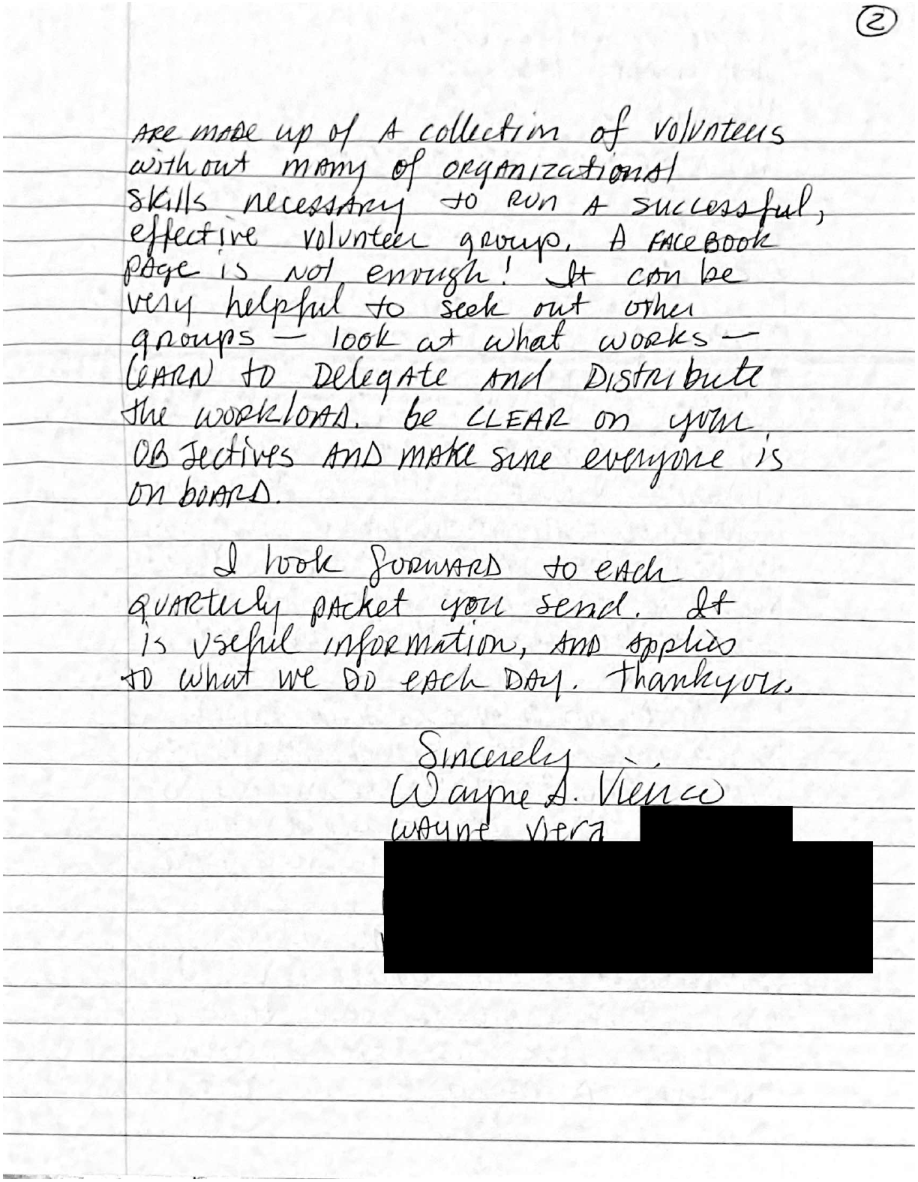 2
are made up of a collection of volunteers
without many of organizational
skills necessary to run a successful,
effective volunteer group. A Facebook
page is not enough! It can be
very helpful to seek out other
groups — look at what works —
learn to delegate and distribute
the workload. be CLEAR on your
objectives and make sure everyone is
on board.
I look forward to each
quarterly packet you send. It
is useful information, and applies
to what we do each day. Thank you.
Sincerely
Wayne A. Viera
Wayne Viera